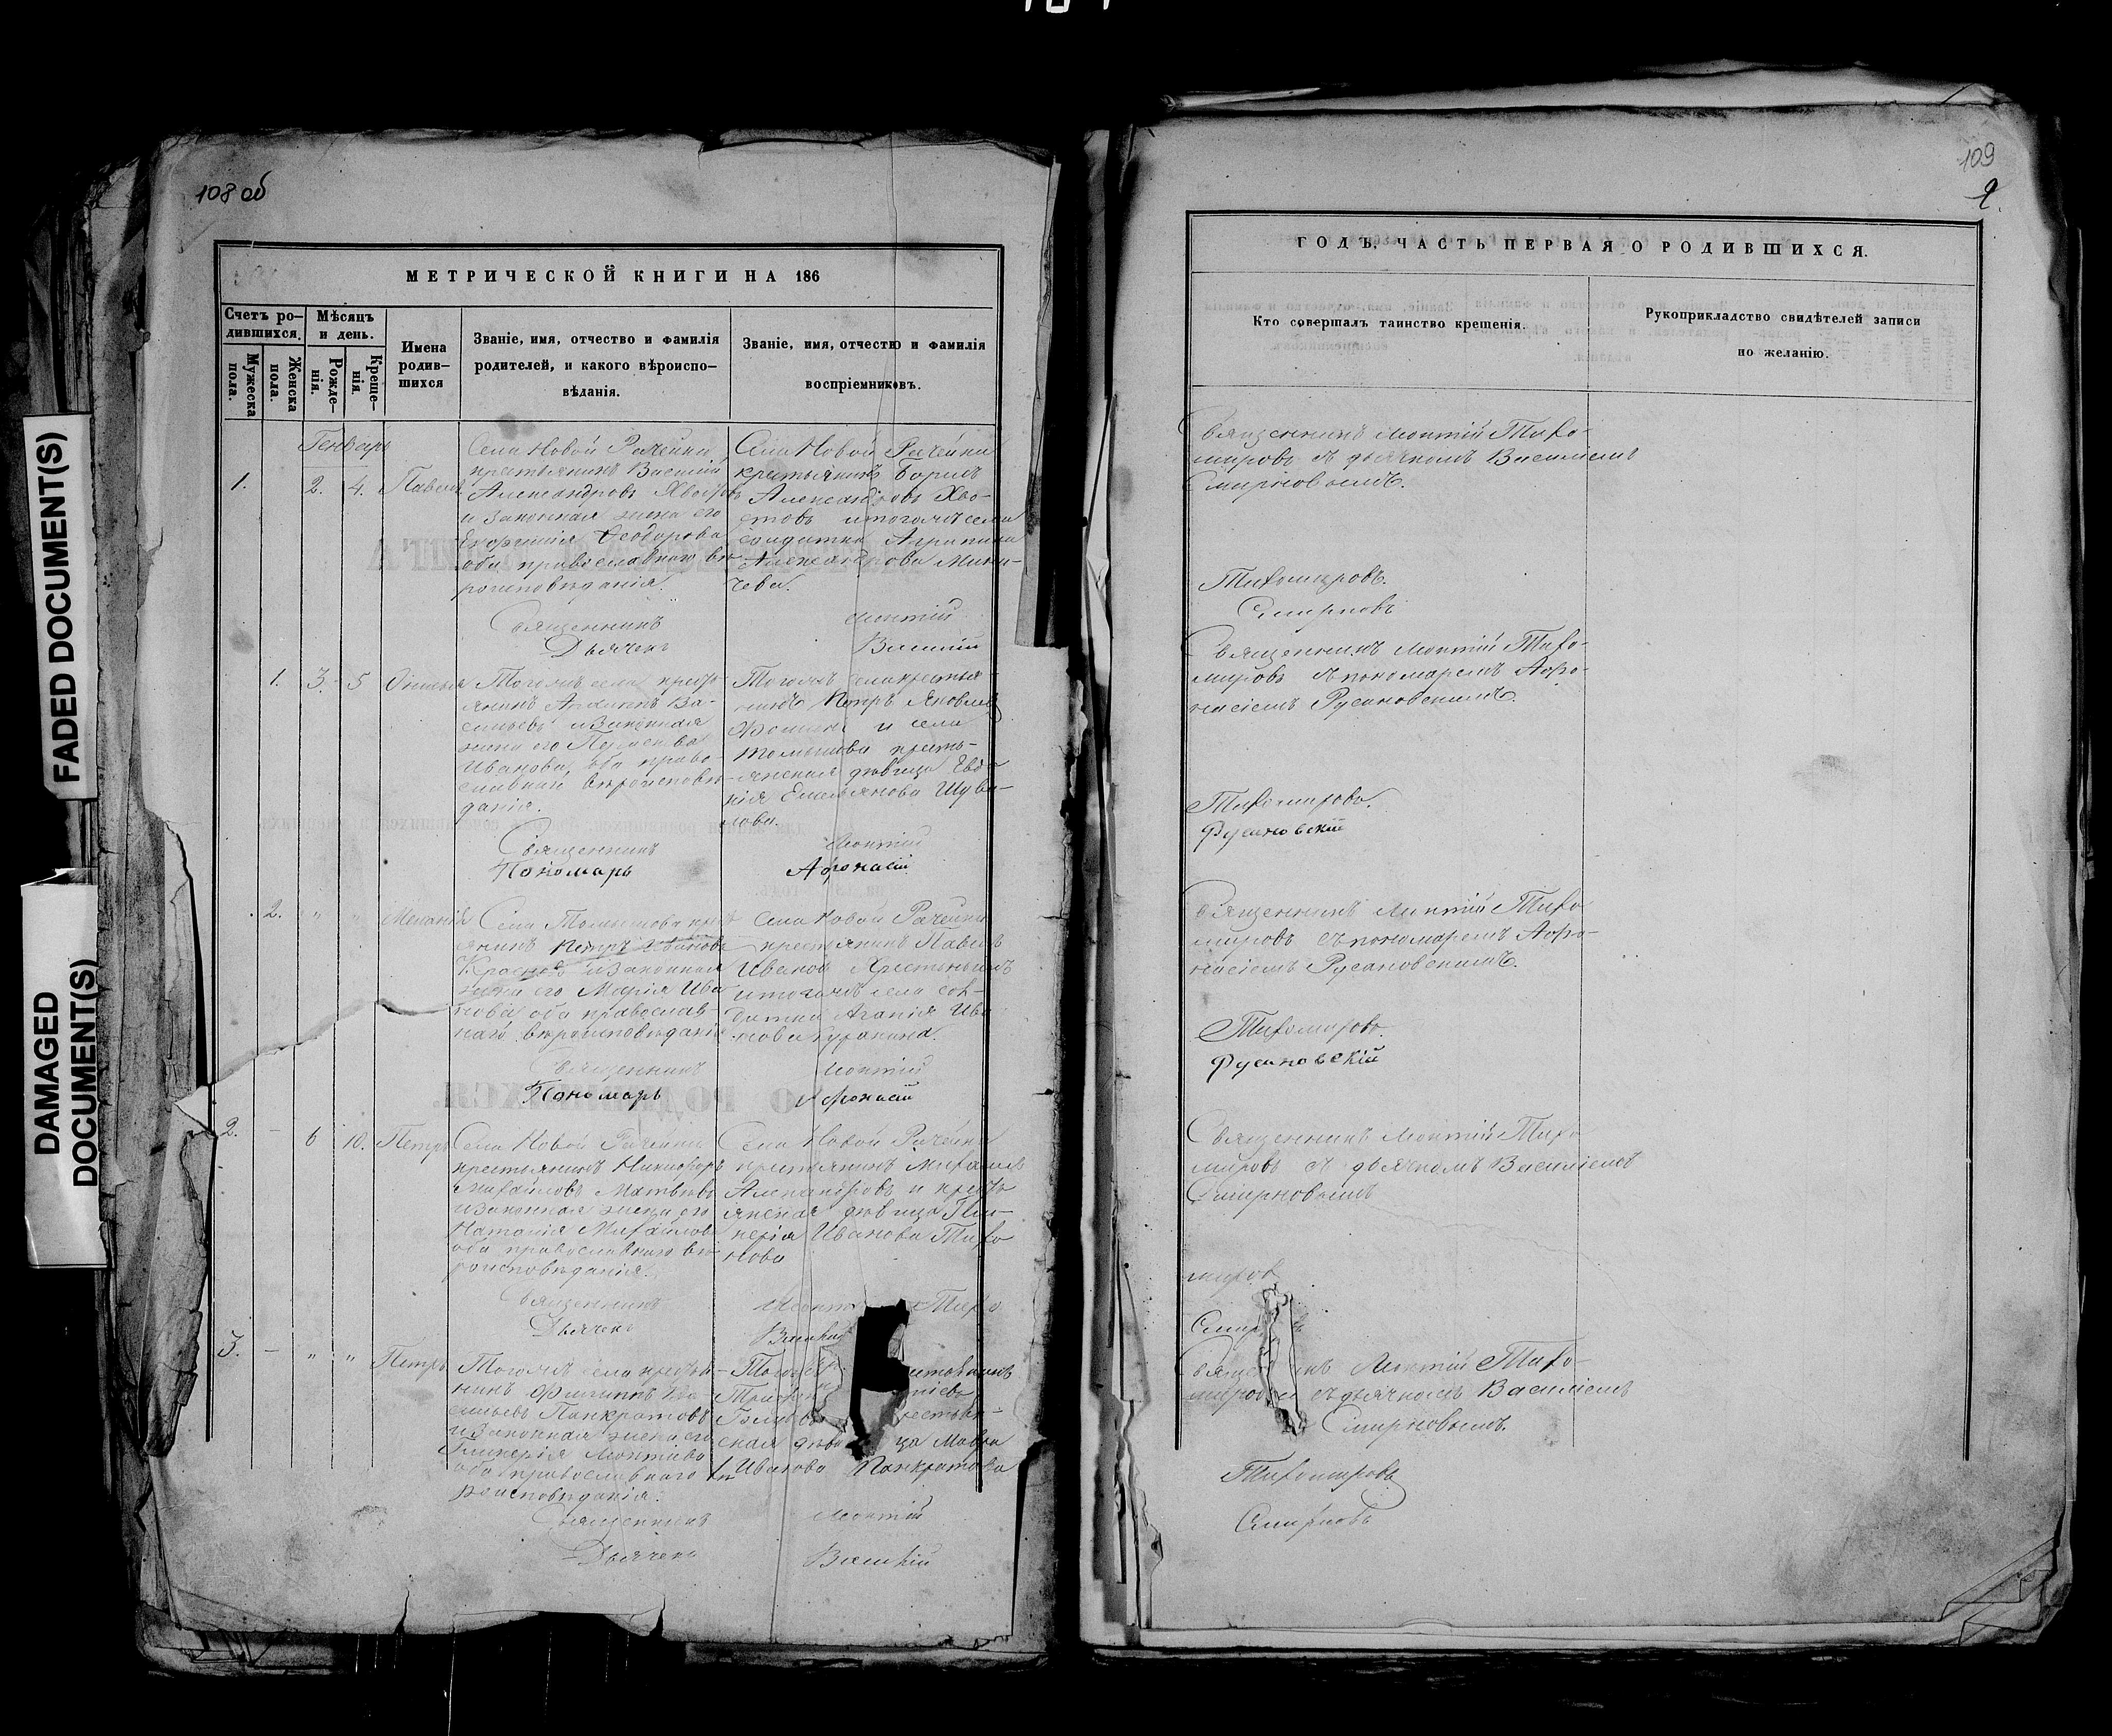 FADED DOCUMENT(S)
DAMAGED
DOCUMENT(S)
108 об
МЕТРИЧЕСКОЙ КНИГИ НА 186
Счетъ ро-
дившихся.
Мужеска
пола.
Женска
пола.
Мѣсяцъ
и день.
Рожде-
нія.
Креще-
нія.
Имена
родив-
шихся
Званіе, имя, отчество и фамилія
родителей, и какого вѣроиспо-
вѣданія.
Званіе, имя, отчество и фамилія
воспріемниковъ.
Генварь
1.
2.
4.
Павелъ
Села Новой Рачейки
крестьянинъ Василій
Александровъ Хвостовъ
и законная жена его
Феодорова
оба православнаго вѣ-
роисповѣданія.
Села Новой Рачейки
крестьянинъ Борисъ
Александровъ Хво-
стовъ и тогожъ села
солдатка Агрипина
Александрова Мини-
чева.
Священникъ
Монтій
Дьячекъ
Василій
1.
3.
5
Тогожъ села кресть-
янинъ Ва-
сильевъ и законная
жена его
Иванова, оба право-
славнаго вѣроисповѣ-
данія.
Тогожъ села крестья-
нинъ Петръ Яковлевъ
и села
Томышова кресть-
янская дѣвица Евдо-
кія Емельянова Шува-
лова.
Священникъ
Монтій
Пономарь
Афонасій
2.
"
"
Меланія
Села Томышова крест-
янинъ Петръ Ивановъ
Красновъ и законная
жена его Марія Ива-
нова оба православ-
наго вѣроисповѣданія
Села Новой Рачейки
крестьянинъ Павелъ
Ивановъ
и тогожъ села сол-
датка Агапія Ива-
нова Куракина.
Священникъ
Монтій
Пономарь
Афонасій
2.
–
6
10.
Петръ
Села Новой Рачейки
крестьянинъ Никифоръ
Михайловъ Матвѣевъ
и законная жена его
Наталія Михайлова
оба православнаго вѣ-
роисповѣданія.
Села Новой Рачейки
крестьянинъ Михаилъ
Александровъ и кресть-
янская дѣвица Гли-
керія Иванова Тихо-
нова
Священникъ
Тихо
Дьячекъ
Василій
3.
–
"
"
Петръ
Тогожъ села крестья-
нинъ Филиппъ Ва-
сильевъ Панкратовъ
и законная жена его
Гликерія Монтіева
оба православнаго вѣ-
роисповѣданія.
ская дѣвица Мавра
Иванова Панкратова
Священникъ
Монтій
Дьячекъ
Василій
109
2.
ГОДЪ, ЧАСТЬ ПЕРВАЯ О РОДИВШИХСЯ.
Кто совершалъ таинство крещенія.
Рукоприкладство свидѣтелей записи
по желанію.
Священникъ Монтій Тихо-
мировъ съ дьячкомъ Василіемъ
Смирновымъ.
Тихомировъ.
Смирновъ
Священникъ Монтій Тихо-
мировъ съ пономаремъ Афо-
насіемъ Русановскимъ.
Тихомировъ.
Русановскій
Священникъ Монтій Тихо
мировъ съ пономаремъ Афо-
насіемъ Русановскимъ.
Тихомировъ.
Русановскій
Священникъ Монтій Тихо
мировъ съ дьячкомъ Василіемъ
Смирновымъ
миров
Священникъ Монтій Тихо-
мировъ съ дьячкомъ Василіемъ
Смирновымъ.
Тихомировъ
Смирновъ